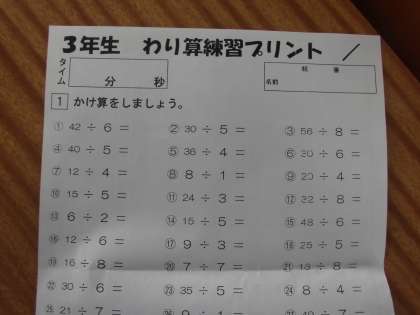 3年生 わり算練習プリント /
タイム 分 秒
名前
1 かけ算をしましょう。
① 42 ÷ 6 = ② 30 ÷ 5 = ③ 56 ÷ 8 =
④ 40 ÷ 5 = ⑤ 36 ÷ 4 = ⑥ 30 ÷ 6 =
⑦ 12 ÷ 4 = ⑧ 8 ÷ 1 = ⑨ 20 ÷ 4 =
⑩ 15 ÷ 5 = ⑪ 24 ÷ 3 = ⑫ 32 ÷ 8 =
⑬ 6 ÷ 2 = ⑭ 15 ÷ 5 = ⑮ 48 ÷ 6 =
⑯ 12 ÷ 6 = ⑰ 9 ÷ 3 = ⑱ 25 ÷ 5 =
⑲ 16 ÷ 8 = ⑳ 7 ÷ 7 = ㉑ ÷ 8 =
㉒ 30 ÷ 6 = ㉓ 35 ÷ 5 = ㉔ 8 ÷ 4 =
㉕ 21 ÷ 7 =